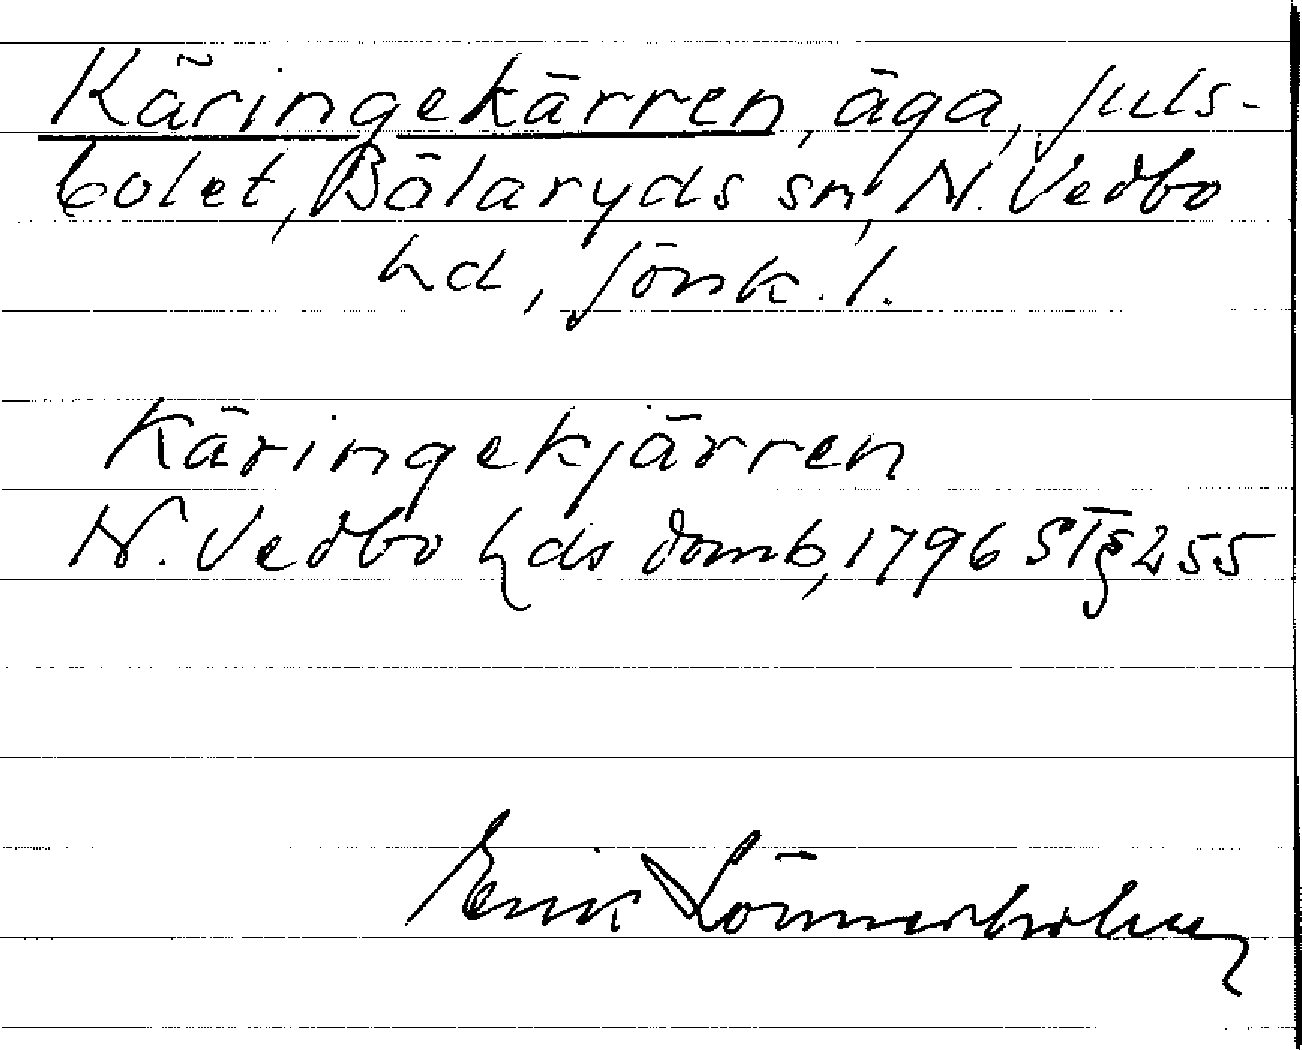 Käringekärren, äga, Juls-
bolet, Bälaryds sn, N. Vedbo
hd, Jönk. l.
Käringekjärren
N. Vedbo hds domb, 1796 ST § 255
Erik Lönnerholm